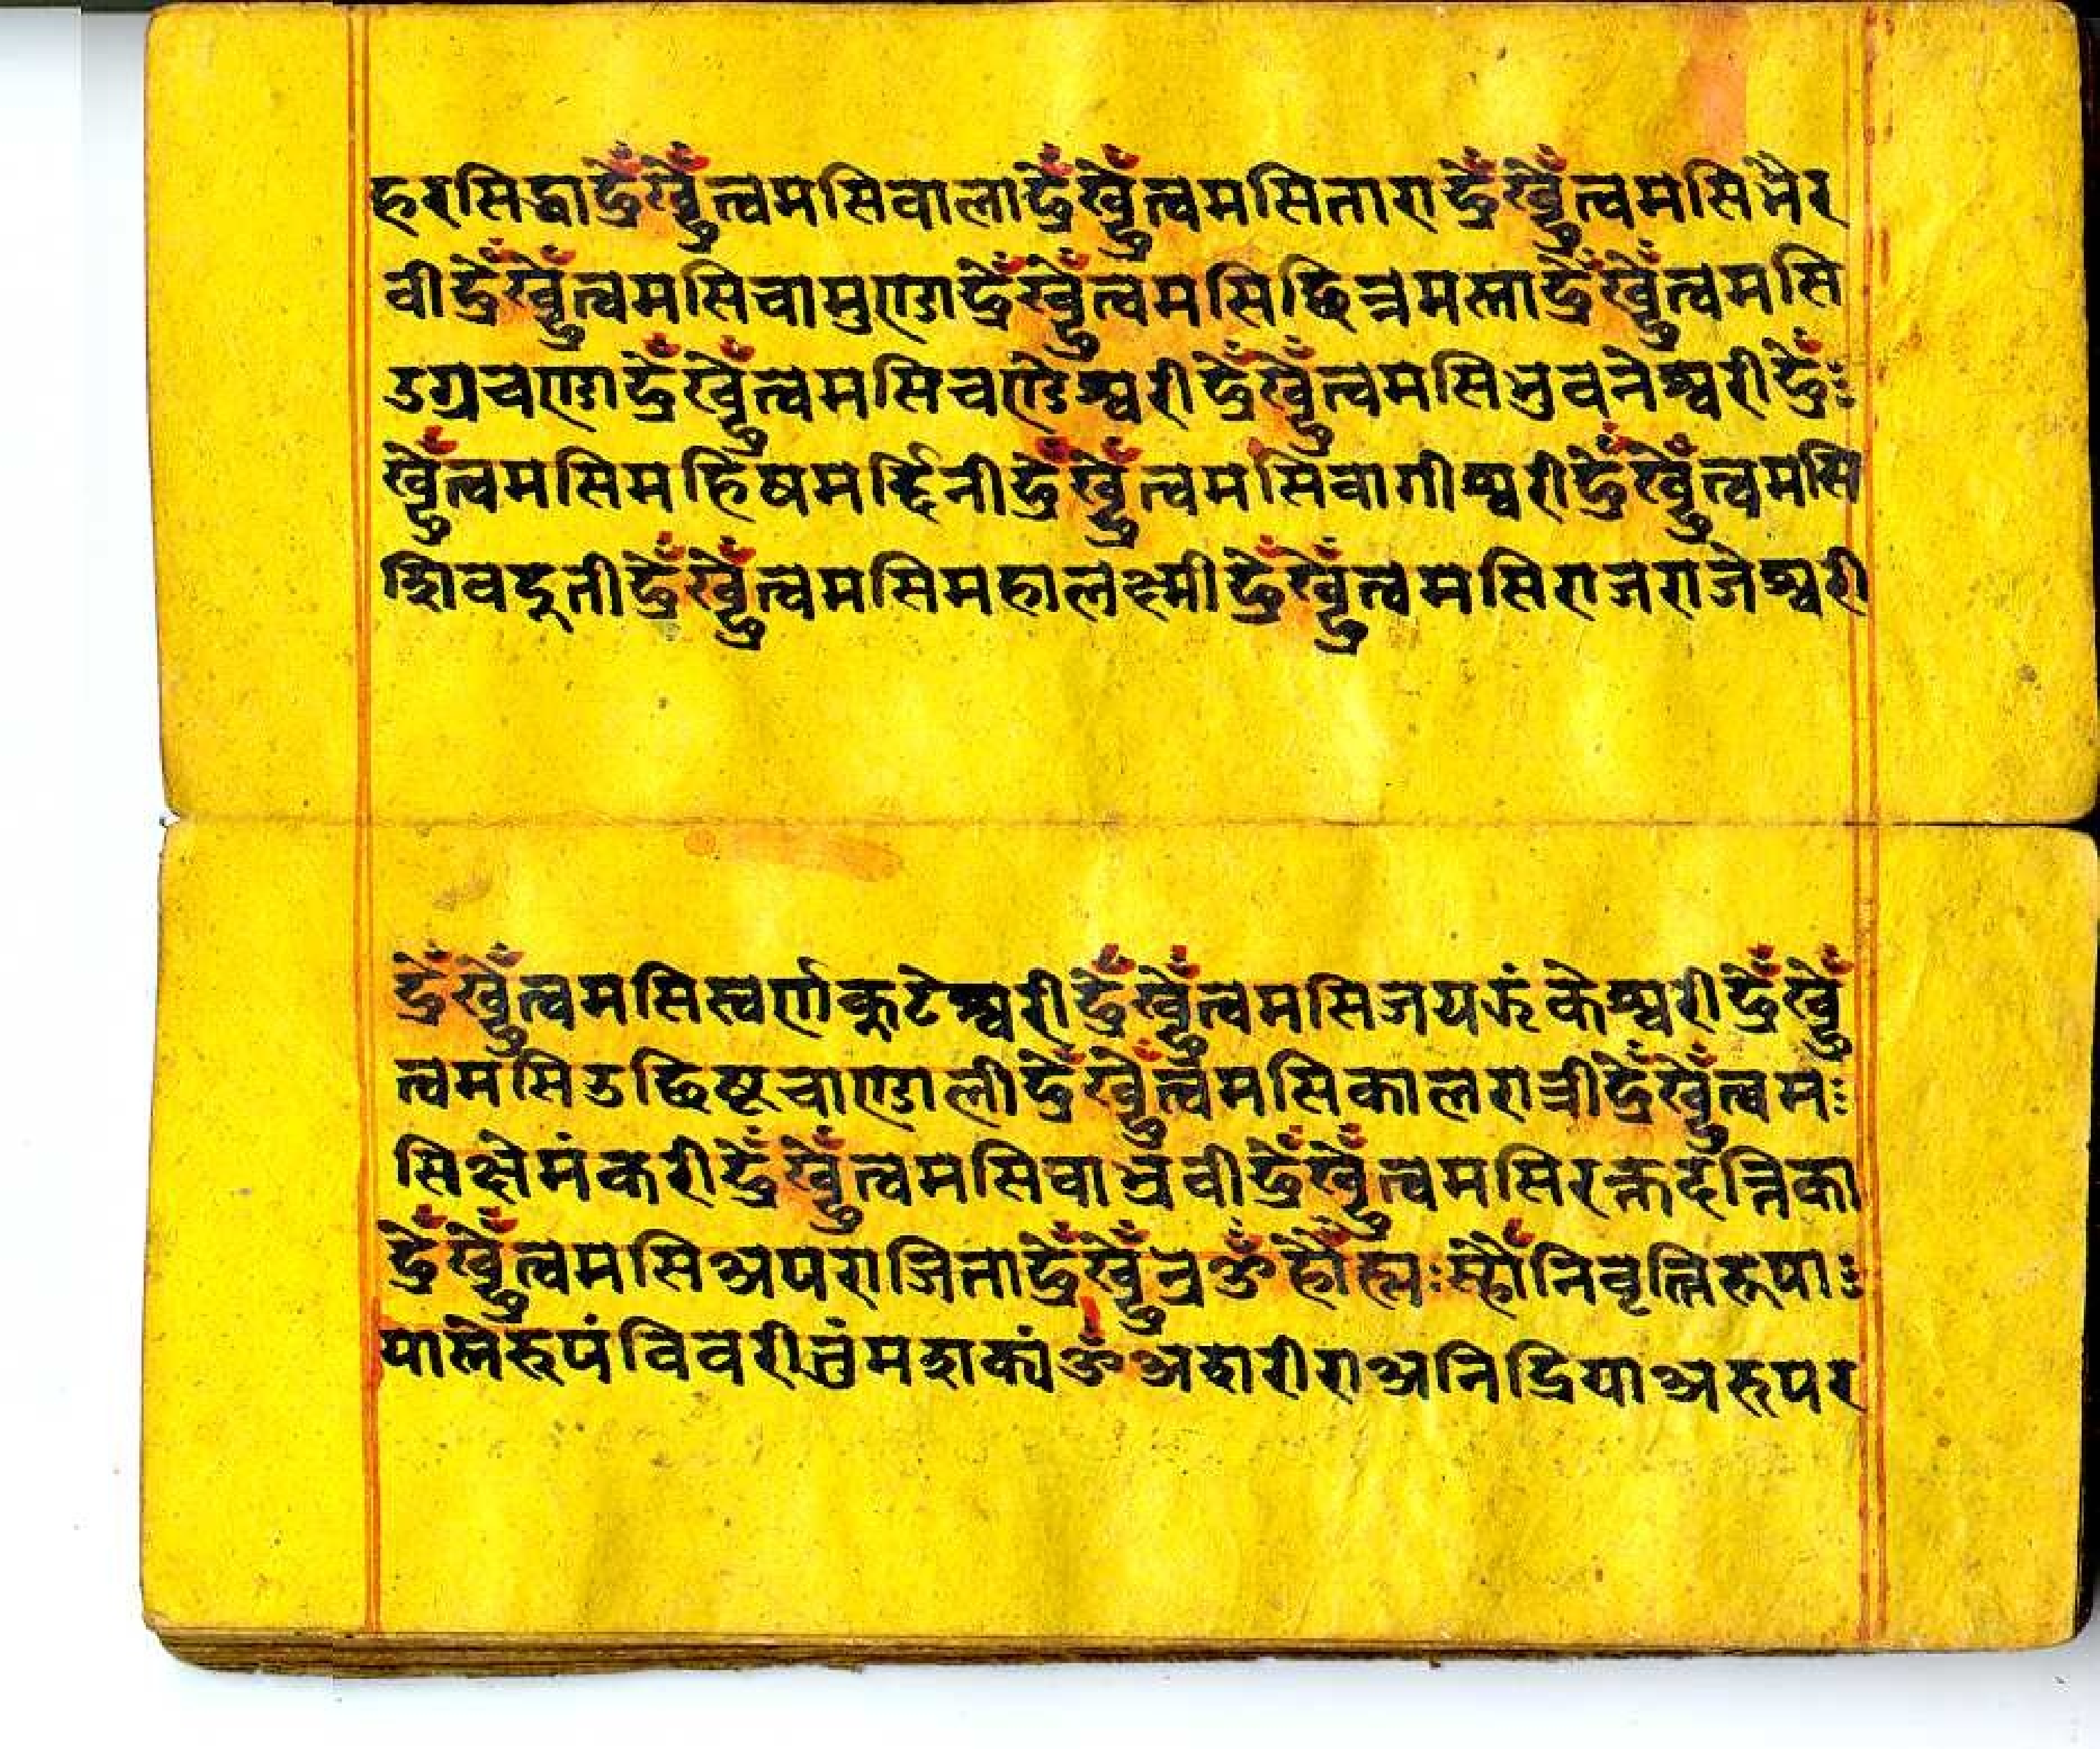 हरसिद्धाद्रेँखूँत्वमसिवालाद्रेँखूँत्वमसिताराद्रेँखूँत्वमसिभैर
वीद्रेँखूँत्वमसिचामुण्डाद्रेँखूँत्वमसिछिन्नमस्ताद्रेँखूँत्वमसि
उग्रचण्डाद्रेँखूँत्वमसिचण्डेश्वरीद्रेँखूँत्वमसिभुवनेश्वरीद्रेँः
खूँत्वमसिमहिषमर्द्दिनीद्रेँखूँत्वमसिवागीश्वरीद्रेँखूँत्वमसि
शिवदूतीद्रेँखूँत्वमसिमहालक्ष्मीद्रेँखूँत्वमसिराजराजेश्वरी
द्रेँखूँत्वमसिस्वर्णकूटेश्वरीद्रेँखूँत्वमसिजयझंकेश्वरीद्रेँखूँ
त्वमसिउछिष्टचाण्डालीद्रेँखूँत्वमसिकालरात्रीद्रेँखूँत्वमः
सिक्षेमंकरीद्रेँखूँत्वमसिवाभ्रवीद्रेँखूँत्वमसिरक्तदन्तिका
द्रेँखूँत्वमसिअपराजिताद्रेँखूँ ॐ निवृत्तिरूपाः
पास्तेरूपंविवरीतुंमशक्यंॐअशरीराअनिद्रियाअरूपर